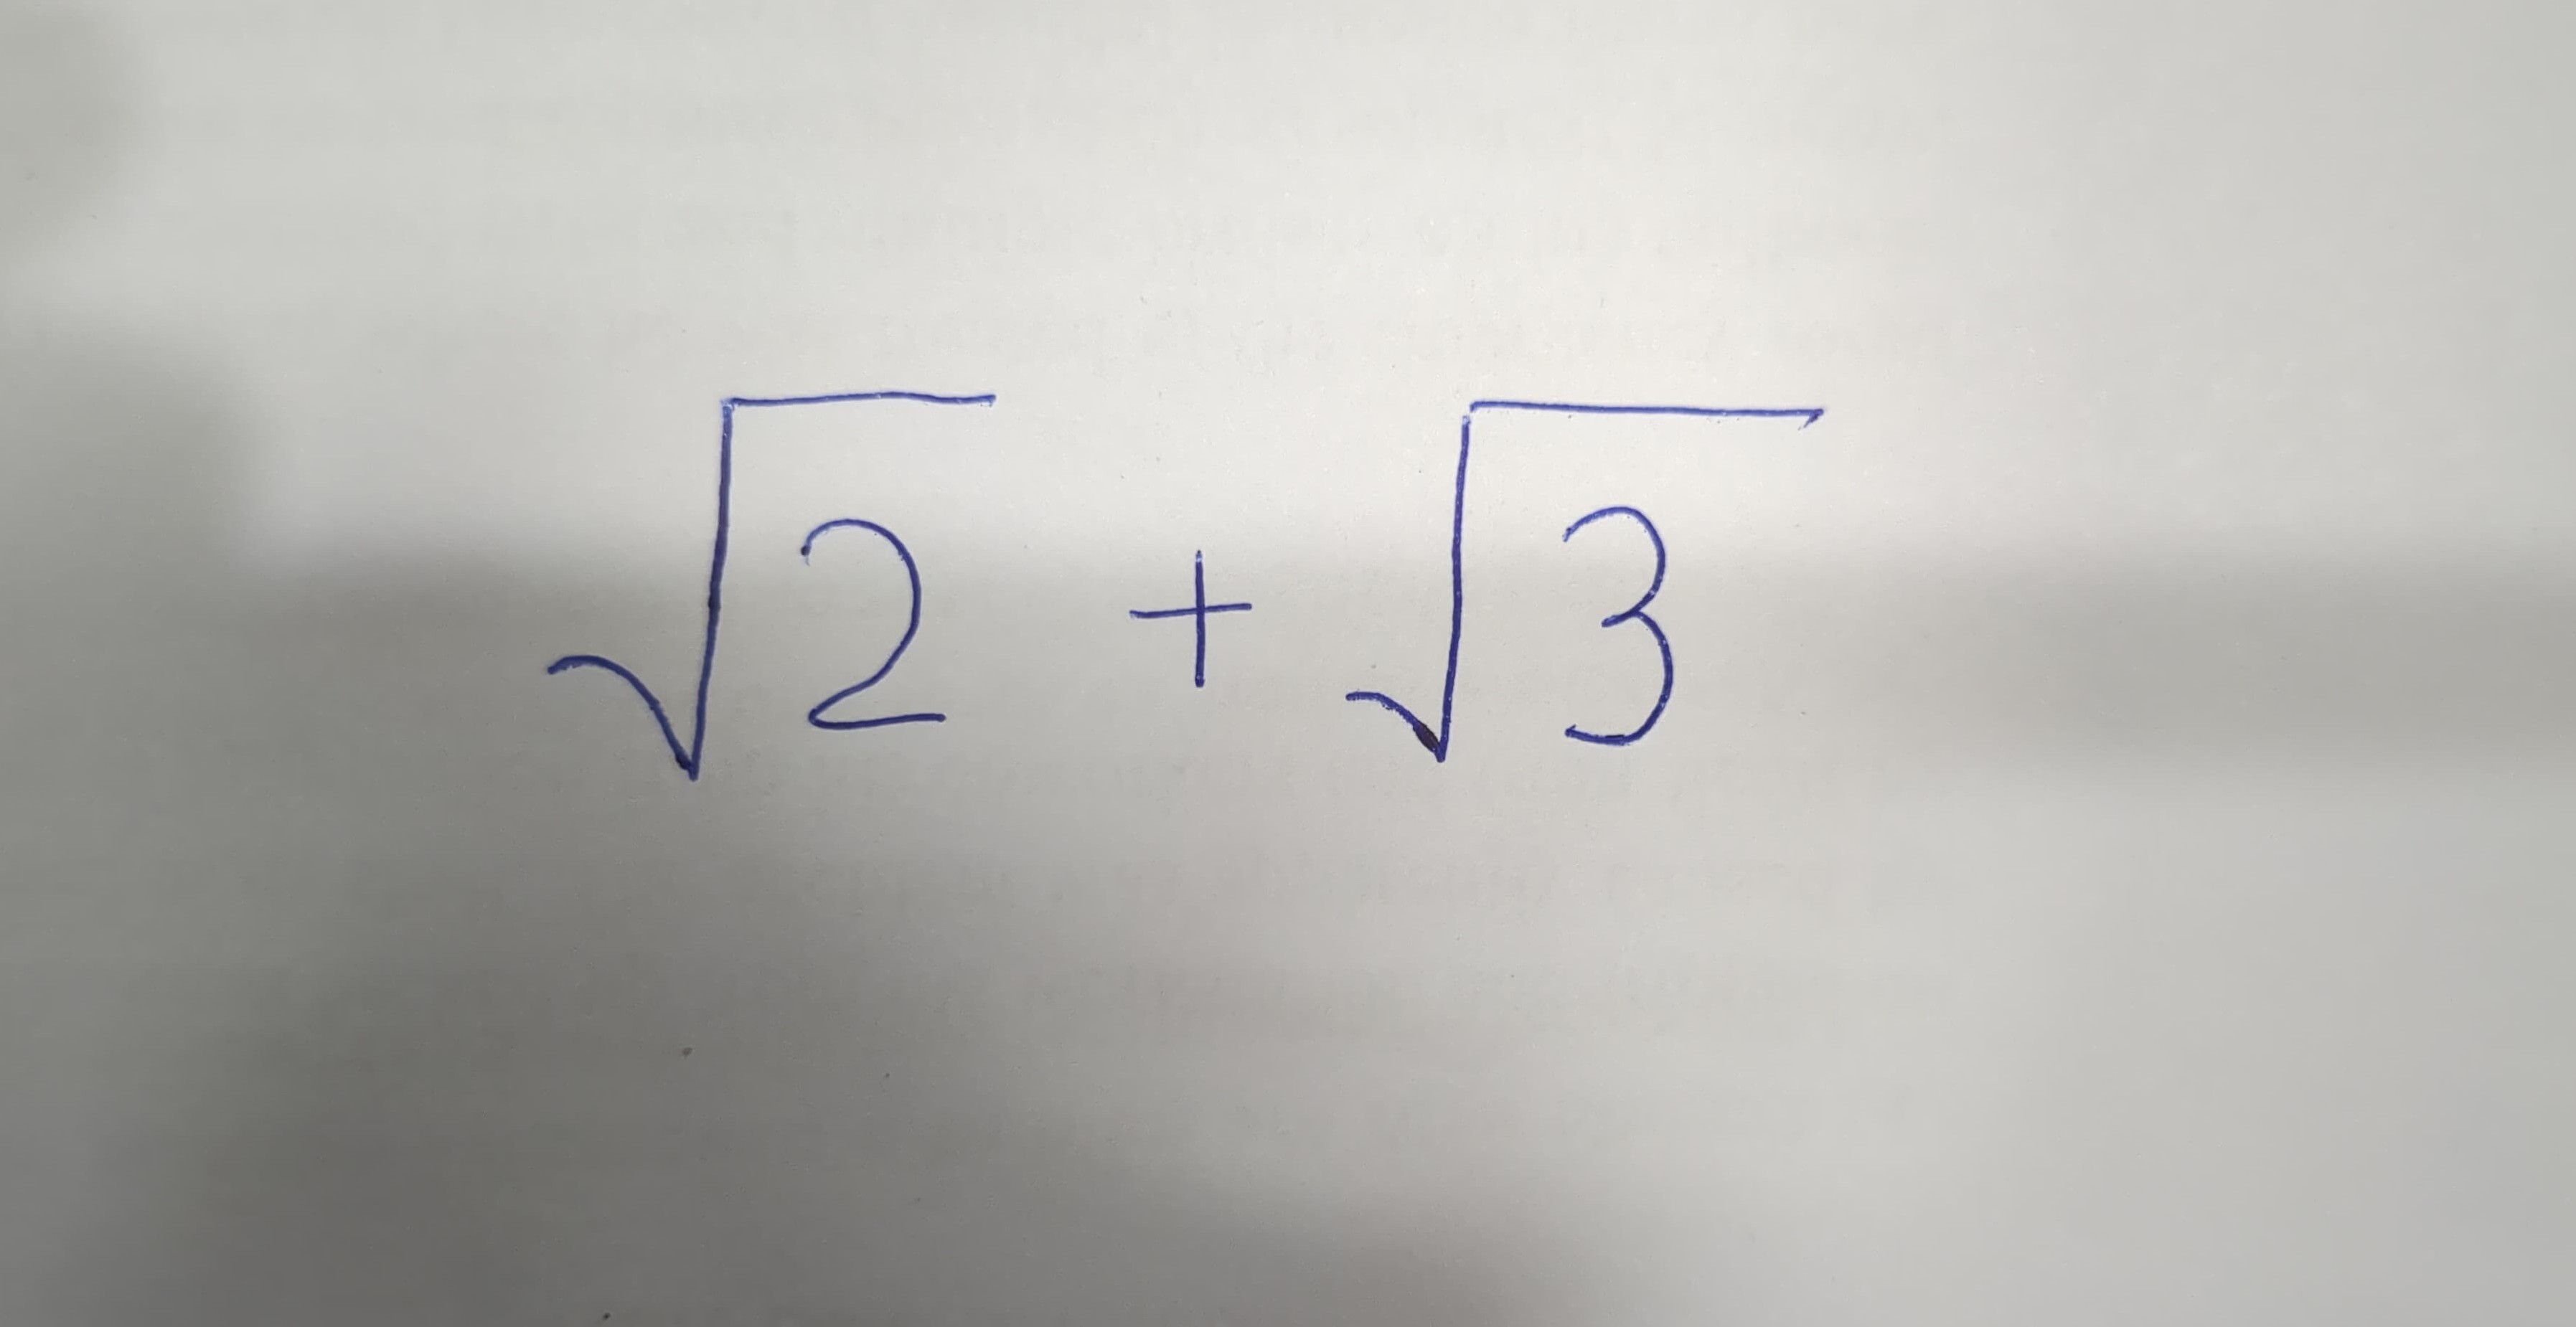 √2 + √3